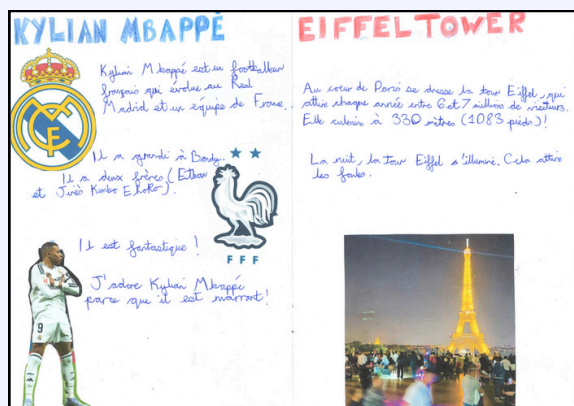 KYLIAN MBAPPÉ
Kylian Mbappé est un footballeur
français qui évolue au Real
Madrid et en équipe de France.
Il a grandi à Bondy.
Il a deux frères (Ethan
et Jirès Kembo Ekoko).
FFF
Il est fantastique !
J'adore Kylian Mbappé
parce que il est marrant!
9
EIFFEL TOWER
Au cœur de Paris se dresse la tour Eiffel, qui
attire chaque année entre 6 et 7 millions de visiteurs.
Elle culmine à 330 mètres (1083 pieds)!
La nuit, la tour Eiffel s'illumine. Cela attire
les foules.